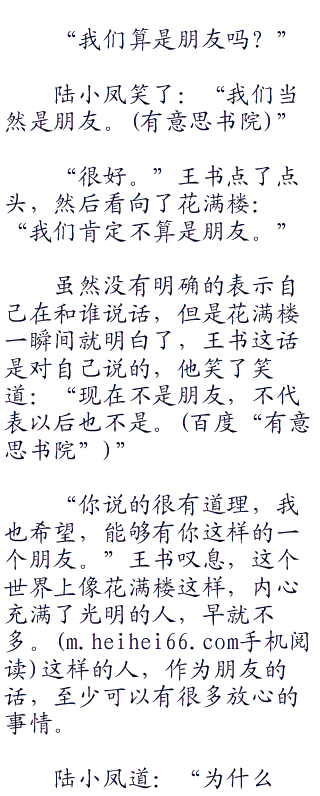 “我们算是朋友吗？”
陆小凤笑了：“我们当
然是朋友。(有意思书院)”
“很好。”王书点了点
头，然后看向了花满楼：
“我们肯定不算是朋友。”
虽然没有明确的表示自
己在和谁说话，但是花满楼
一瞬间就明白了，王书这话
是对自己说的，他笑了笑
道：“现在不是朋友，不代
表以后也不是。(百度“有意
思书院”)”
“你说的很有道理，我
也希望，能够有你这样的一
个朋友。”王书叹息，这个
世界上像花满楼这样，内心
充满了光明的人，早就不
多。(m.heihei66.com手机阅
读)这样的人，作为朋友的
话，至少可以有很多放心的
事情。
陆小凤道：“为什么